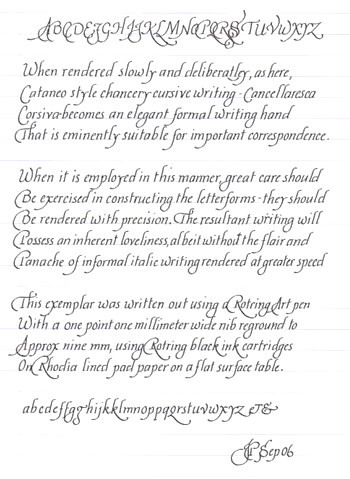 ABCDEFGHIJKLMNOPQRSTUVWXYZ
When rendered slowly and deliberatley, as here,
Cataneo style chancery cursive writing - Cancellaresca
Corsiva - becomes an elegant formal writing hand
That is eminently suitable for important correspondence.
When it is employed in this manner, great care should
Be exercised in constructing the letterforms - they should
Be rendered with precision. The resultant writing will
Possess an inherent loveliness, albeit without the flair and
Panache of informal italic writing rendered at greater speed
This exemplar was written out using a Rotring Art pen
With a one point one millimeter wide nib reground to
Approx nine mm, using Rotring black ink cartridges
On Rhodia lined pad paper on a flat surface table.
abcdeffgghijkklmnoppqrstuvwxyz &&
Sep 06